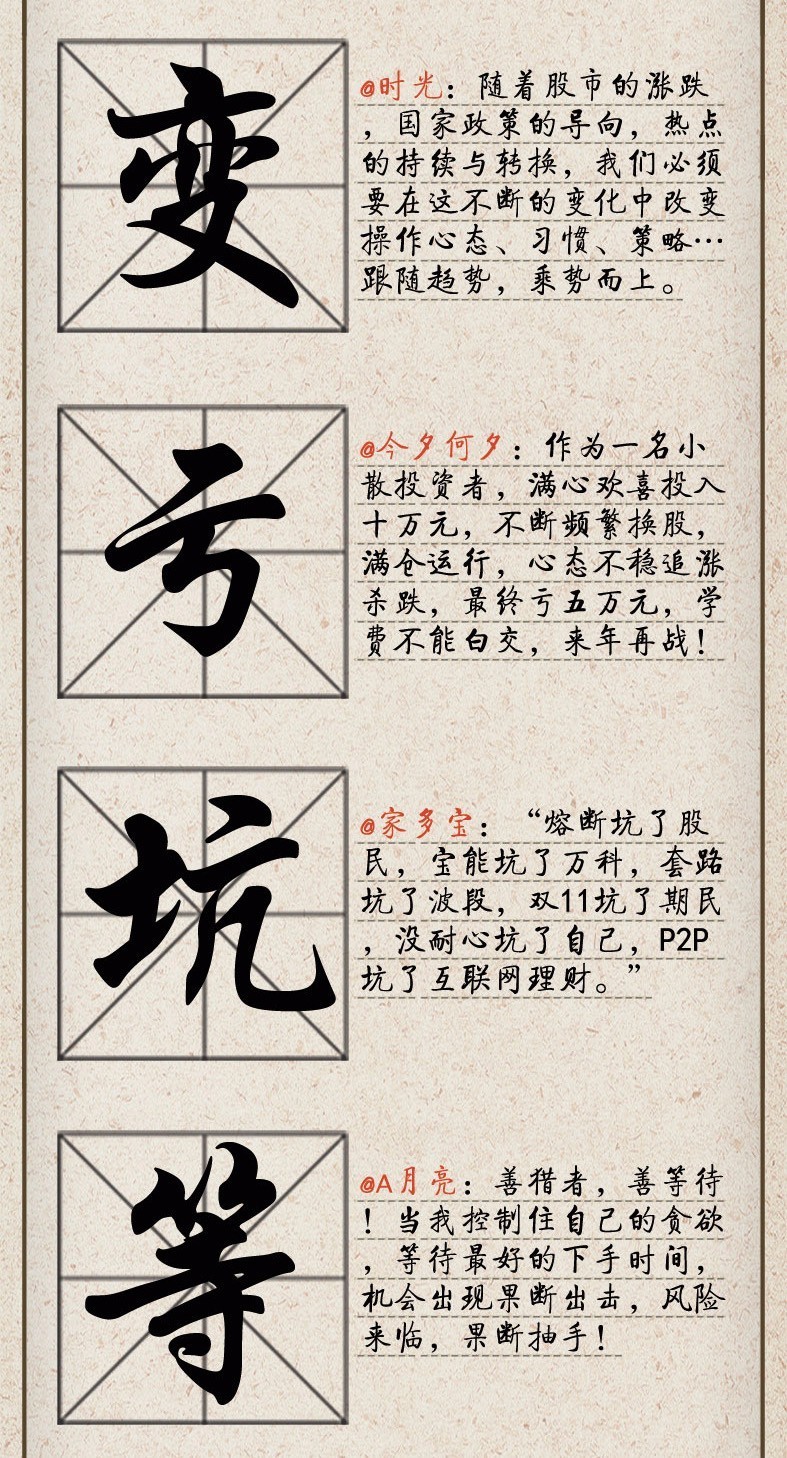 变
@时光：随着股市的涨跌
，国家政策的导向，热点
的持续与转换，我们必须
要在这不断的变化中改变
操作心态、习惯、策略…
跟随趋势，乘势而上。
亏
@今夕何夕：作为一名小
散投资者，满心欢喜投入
十万元，不断频繁换股，
满仓运行，心态不稳追涨
杀跌，最终亏五万元，学
费不能白交，来年再战！
坑
@家多宝：“熔断坑了股
民，宝能坑了万科，套路
坑了波段，双11坑了期民
，没耐心坑了自己，P2P
坑了互联网理财。”
等
@A月亮：善猎者，善等待
！当我控制住自己的贪欲
，等待最好的下手时间，
机会出现果断出击，风险
来临，果断抽手！